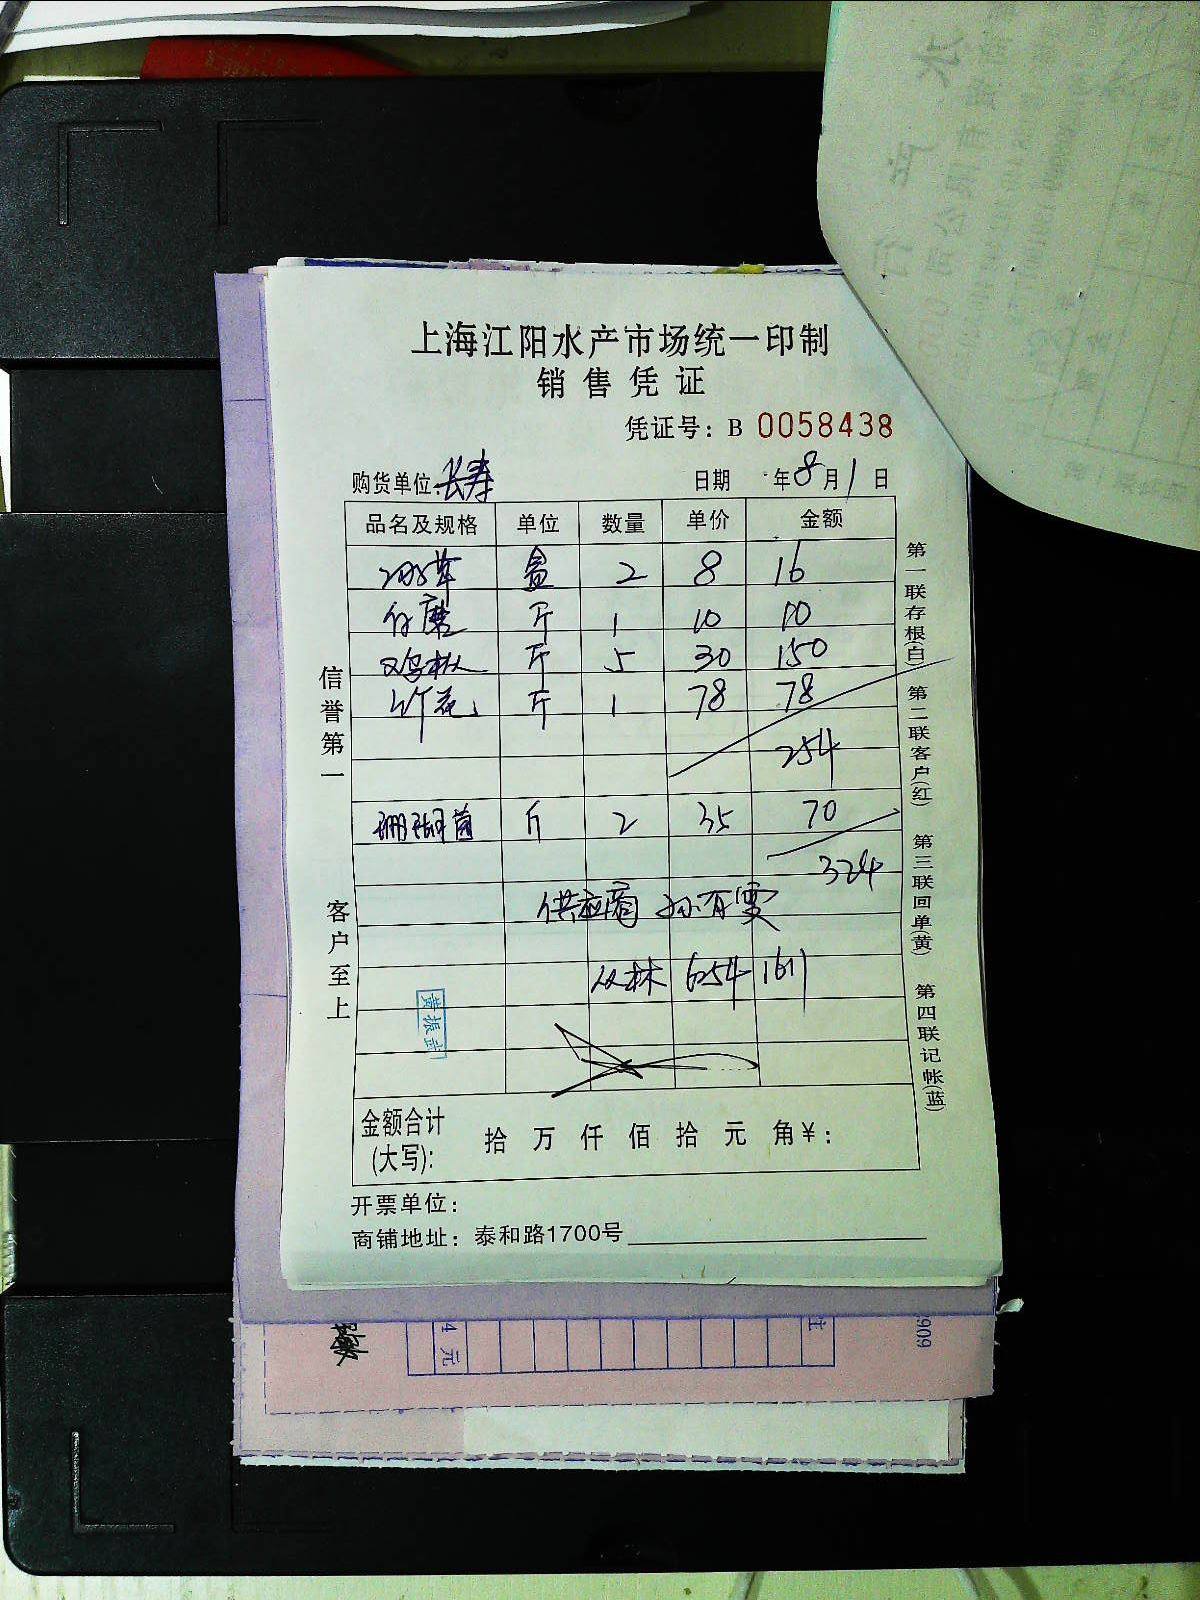 上海江阳水产市场统一印制
销售凭证
凭证号：B 0058438
购货单位：长寿 日期 年8月1日
品名及规格 单位 数量 单价 金额
盒 2 8 16
斤 1 10 10
鸡枞 斤 5 30 150
竹花 斤 1 78 78
254
珊瑚菌 斤 2 35 70
324
供应商 孙有雯
从林 6254 1611
黄振武
金额合计
(大写)： 拾 万 仟 佰 拾 元 角￥：
开票单位：
商铺地址：泰和路1700号
信誉第一
客户至上
第一联存根(白)
第二联客户(红)
第三联回单(黄)
第四联记帐(蓝)
4 元
909